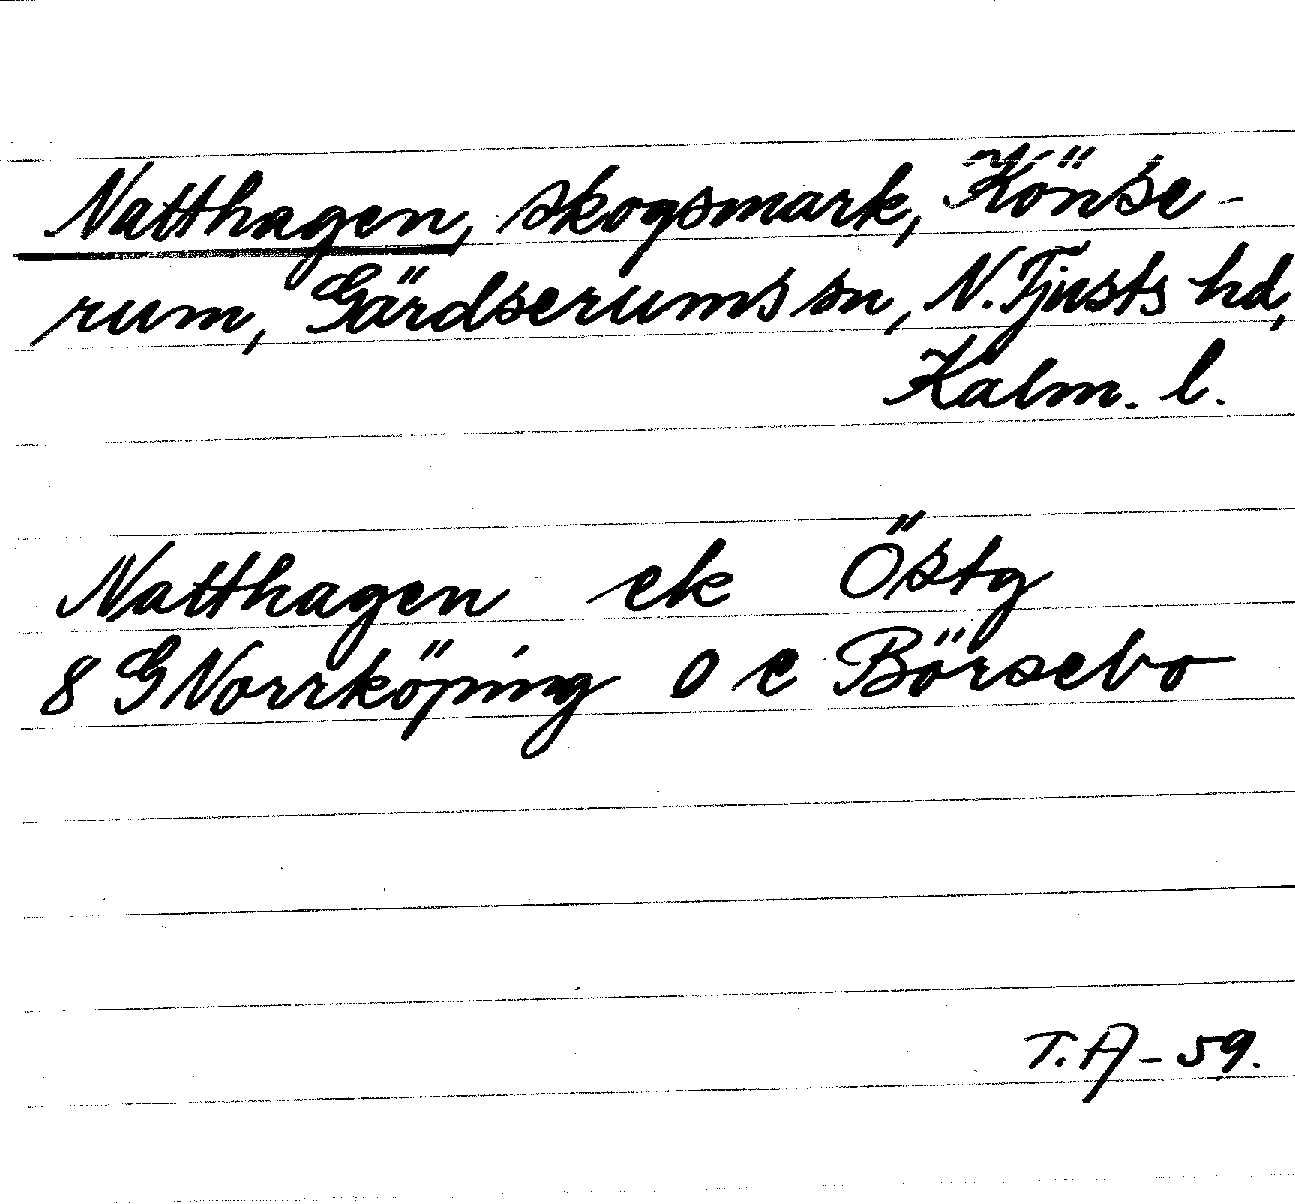 Natthagen, skogsmark, Könse-
rum, Gärdserums sn, N. Tjusts hd,
Kalm. l.
Natthagen ek Östg
8 G Norrköping 0 e Börsebo
T.A - 59.